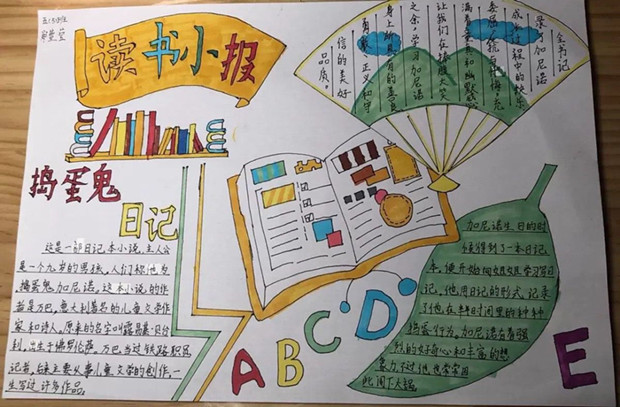 五(5)班
读书小报
捣蛋鬼
日记
这是一部日记本小说,主人公
是一个九岁的男孩,人们称他为
捣蛋鬼加尼诺。这本小说的作
者是万巴,意大利著名的儿童文学作
家和诗人。原来的名字叫路易基·贝台
利,出生于佛罗伦萨。万巴当过铁路职员,
记者,后来主要从事儿童文学的创作,一
生写过许多作品。
全书记
录了加尼诺
成长过程中的快乐
满着童真和幽默感,
让我们在捧腹大笑
之余,学习加尼诺
身上所具有的善良
勇敢、正义和坚
信的美好
品质。
加尼诺生日的时
候得到了一本日记
本,便开始向姐姐学习写日
记。他用日记的形式,记录
了他在半年时间里的种种
捣蛋行为。加尼诺有着强
烈的好奇心和丰富的想
象力,不过他也常常因
此闯下大祸。
A B C D E